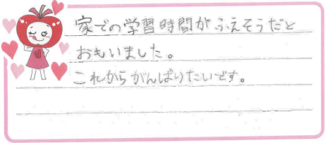 家での学習時間がふえそうだと
おもいました。
これからがんばりたいです。